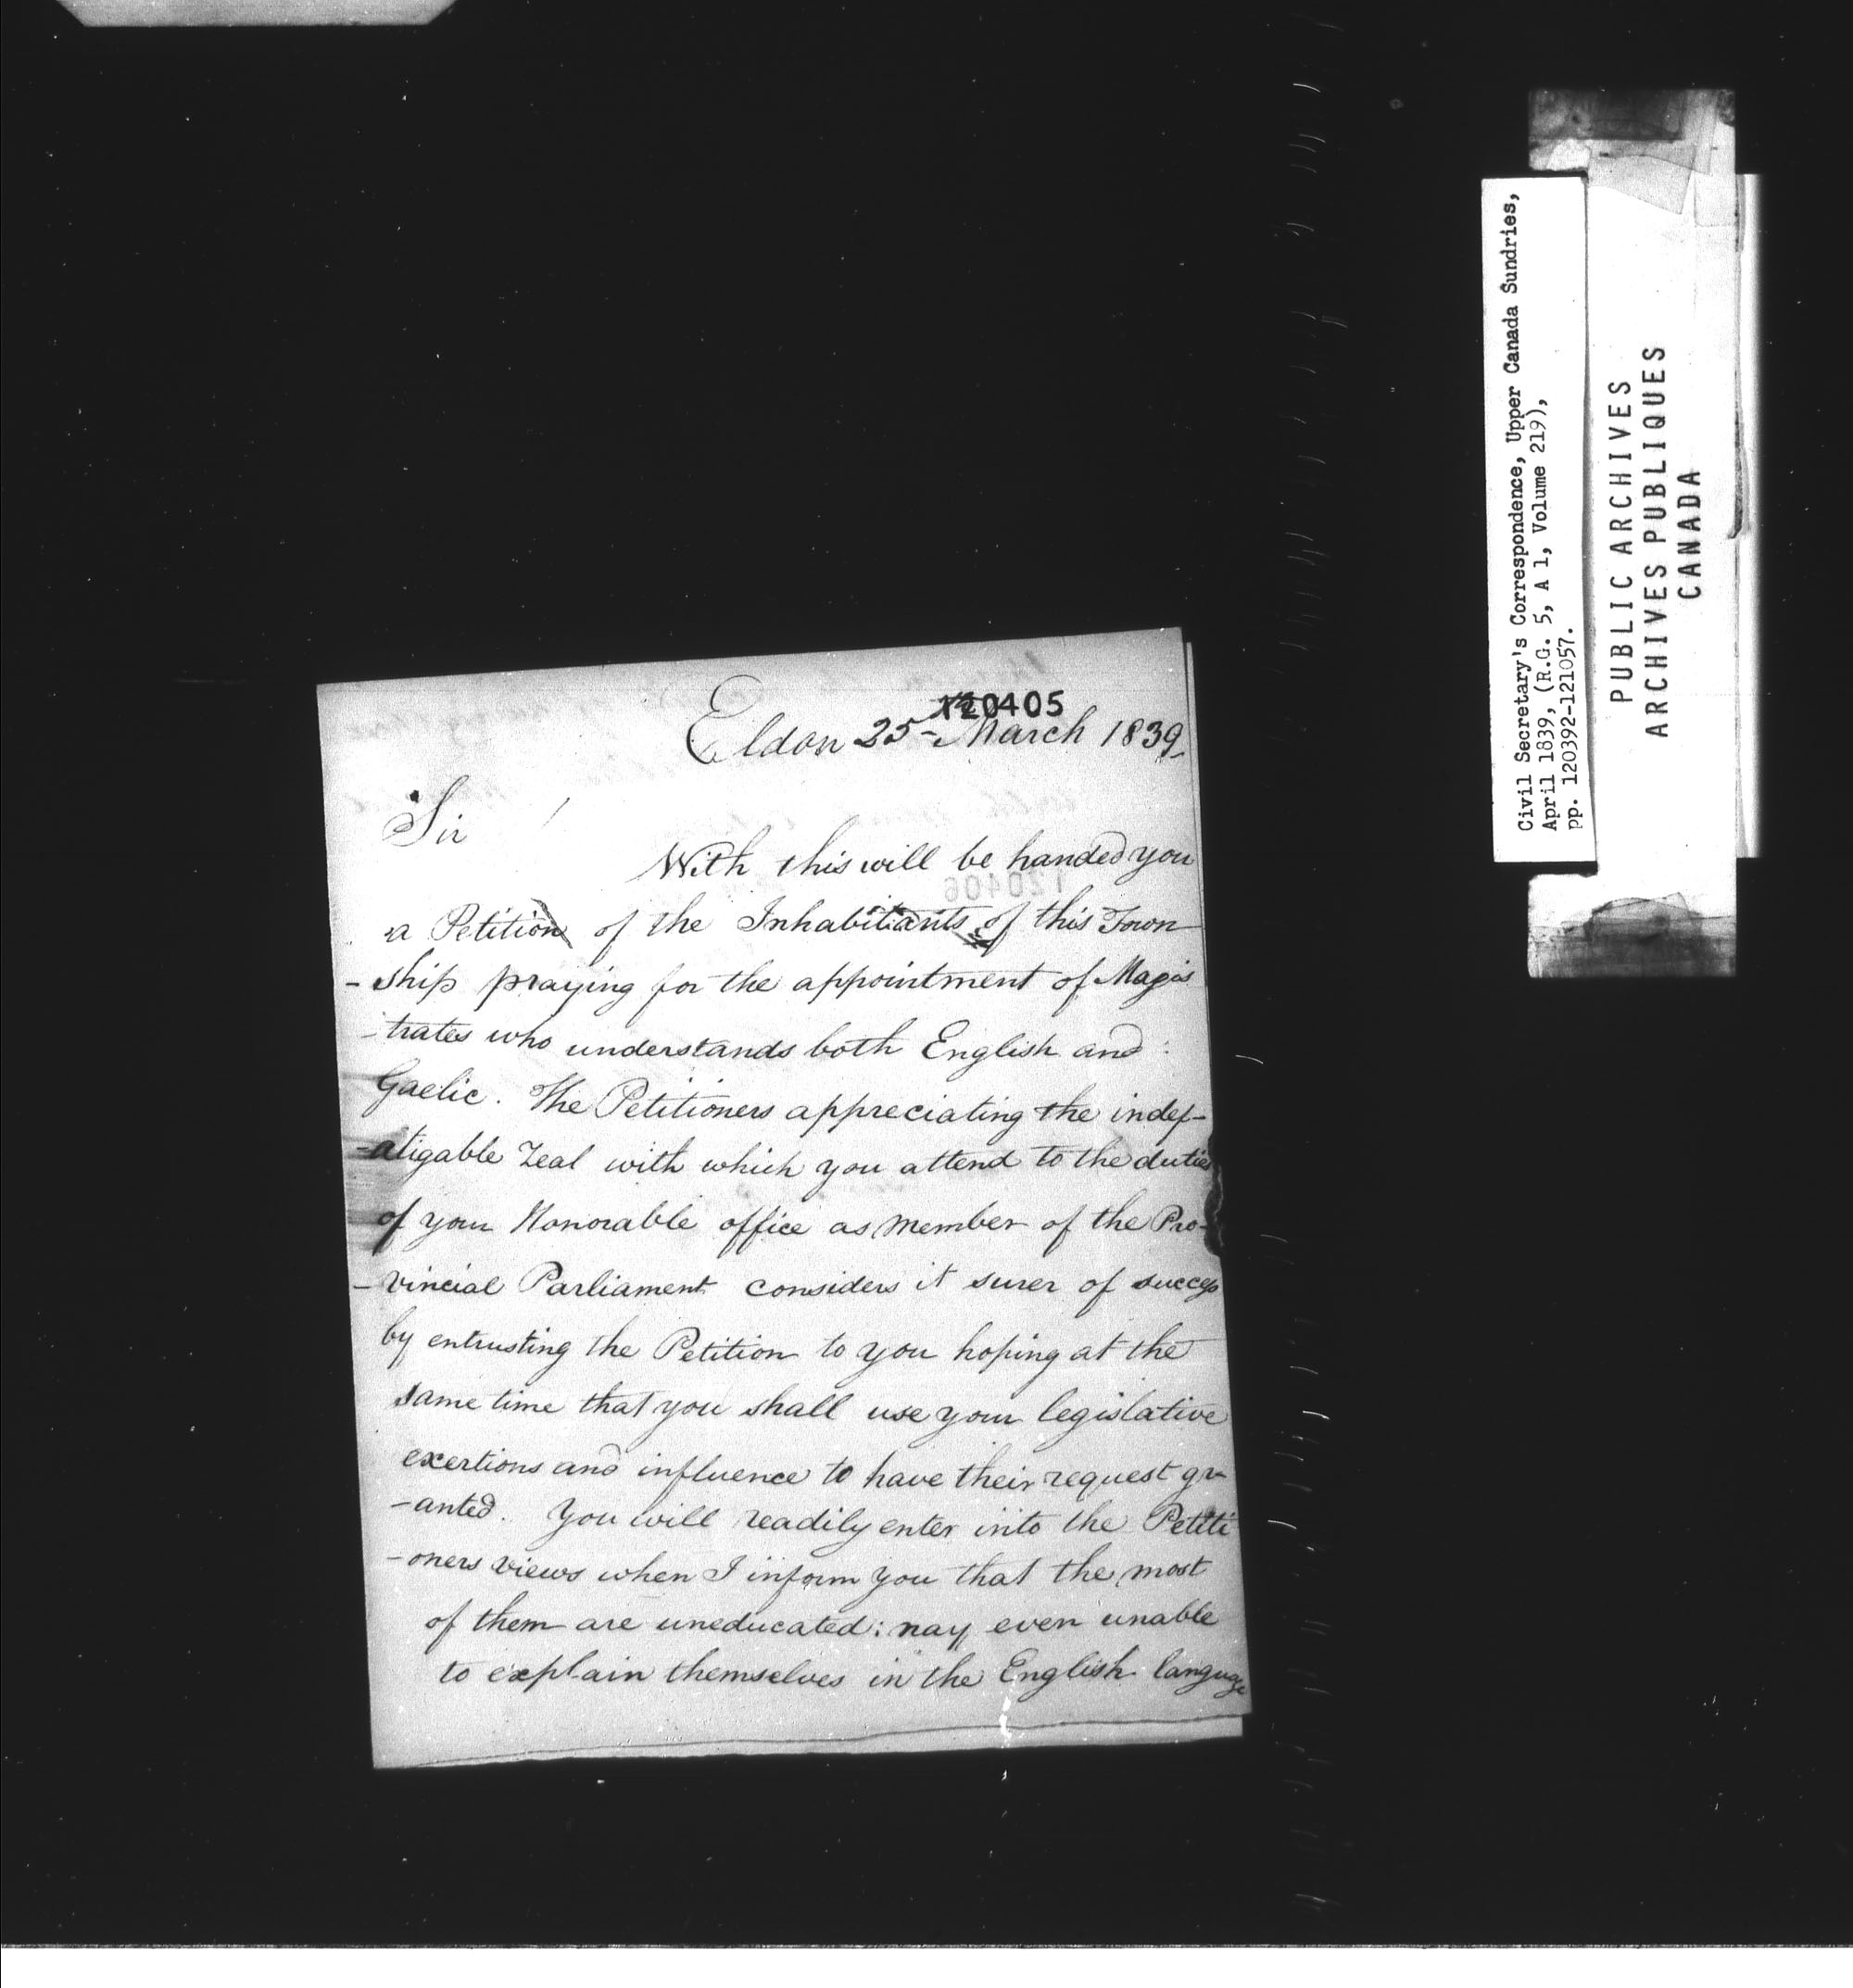 120405
Eldon 25 March 1839
Sir
With this will be handed you
a Petition of the Inhabitants of this Town
-ship praying for the appointment of Magis
-trates who understands both English and
Gaelic. The Petitioners appreciating the indef-
-atigable Zeal with which you attend to the duties
of your Honorable office as Member of the Pro-
-vincial Parliament considers it surer of success
by entrusting the Petition to you hoping at the
same time that you shall use your legislative
exertions and influence to have their request gr-
-anted. You will readily enter into the Petiti
-oners views when I inform you that the most
of them are uneducated: nay even unable
to explain themselves in the English language
120406
Civil Secretary's Correspondence, Upper Canada Sundries,
April 1839, (R.G. 5, A 1, Volume 219),
pp. 120392-121057.
PUBLIC ARCHIVES
ARCHIVES PUBLIQUES
CANADA